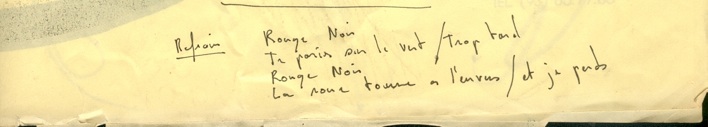 Refrain Rouge Noir
Tu paries sur le vert / Trop tard
Rouge Noir
La roue tourne à l'envers / et je perds